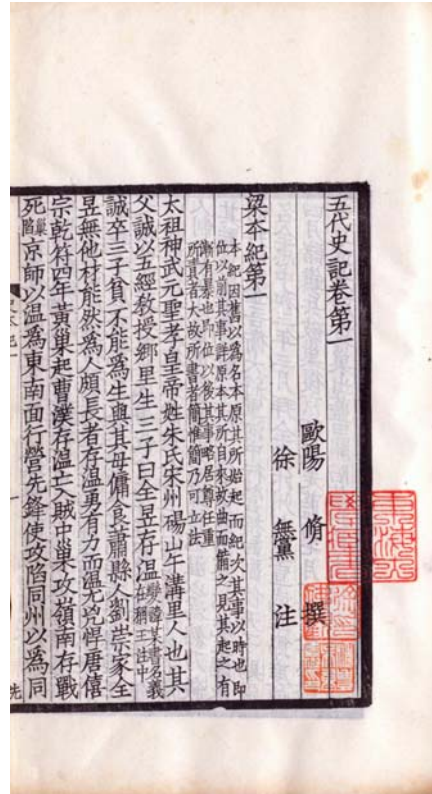 五代史記卷第一
歐陽 脩 撰
徐 無黨 注
梁本紀第一
本紀因舊以爲名本原其所始起而紀次其事以時也即
位以前其事詳原本其所自來故曲而備之見其起之有
漸有暴也即位以後其事略居尊任重
所責者大故所書者簡惟簡乃可立法
太祖神武元聖孝皇帝姓朱氏宋州碭山午溝里人也其
父誠以五經教授鄉里生三子曰全昱存温
誠卒三子貧不能爲生與其母傭食蕭縣人劉崇家全
昱無他材能然爲人頗長者存温勇有力而温尤兇悍唐僖
宗乾符四年黃巢起曹濮存温亡入賊中巢攻嶺南存戰
死巢陷京師以温爲東南面行營先鋒使攻陷同州以爲同